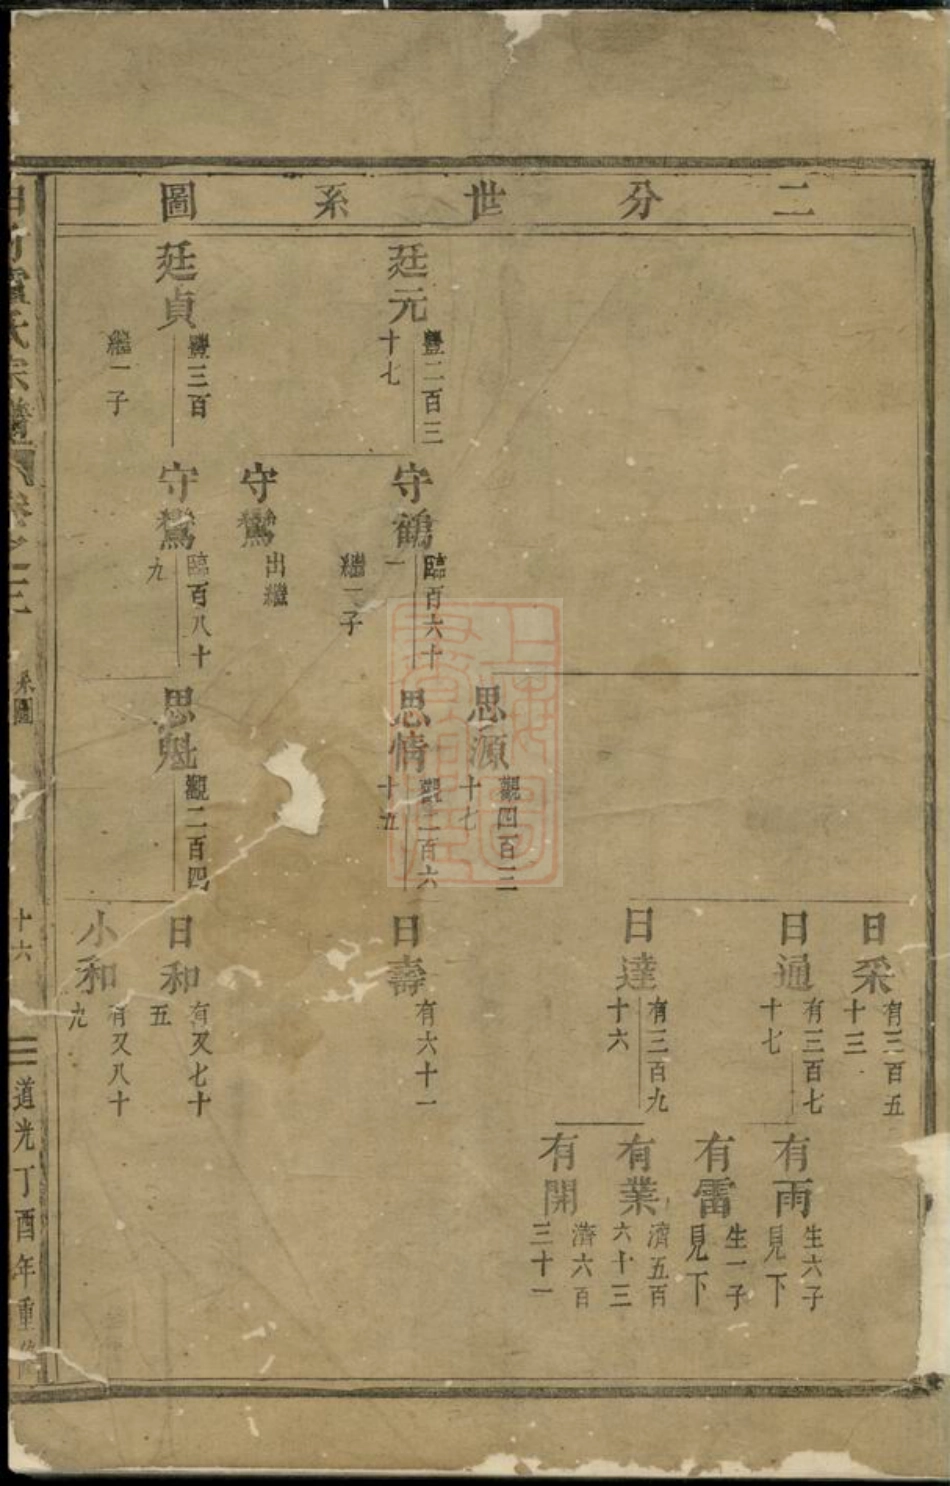 二分世系圖
廷元
豐二百三
十七
廷貞
豐三百
繼一子
守鶴
臨百六十
一
繼一子
守鸞
出繼
守鸞
臨百八十
九
思源
觀四百三
十七
思情
觀二百六
十五
思魁
觀二百四
日采
有三百五
十三
日通
有三百七
十七
日達
有三百九
十六
日壽
有六十一
日和
有又七十
五
小和
有又八十
九
有雨
生六子
見下
有雷
生一子
見下
有業
濟五百
六十三
有開
濟六百
三十一
氏宗譜
卷之三
系圖
十六
道光丁酉年重修